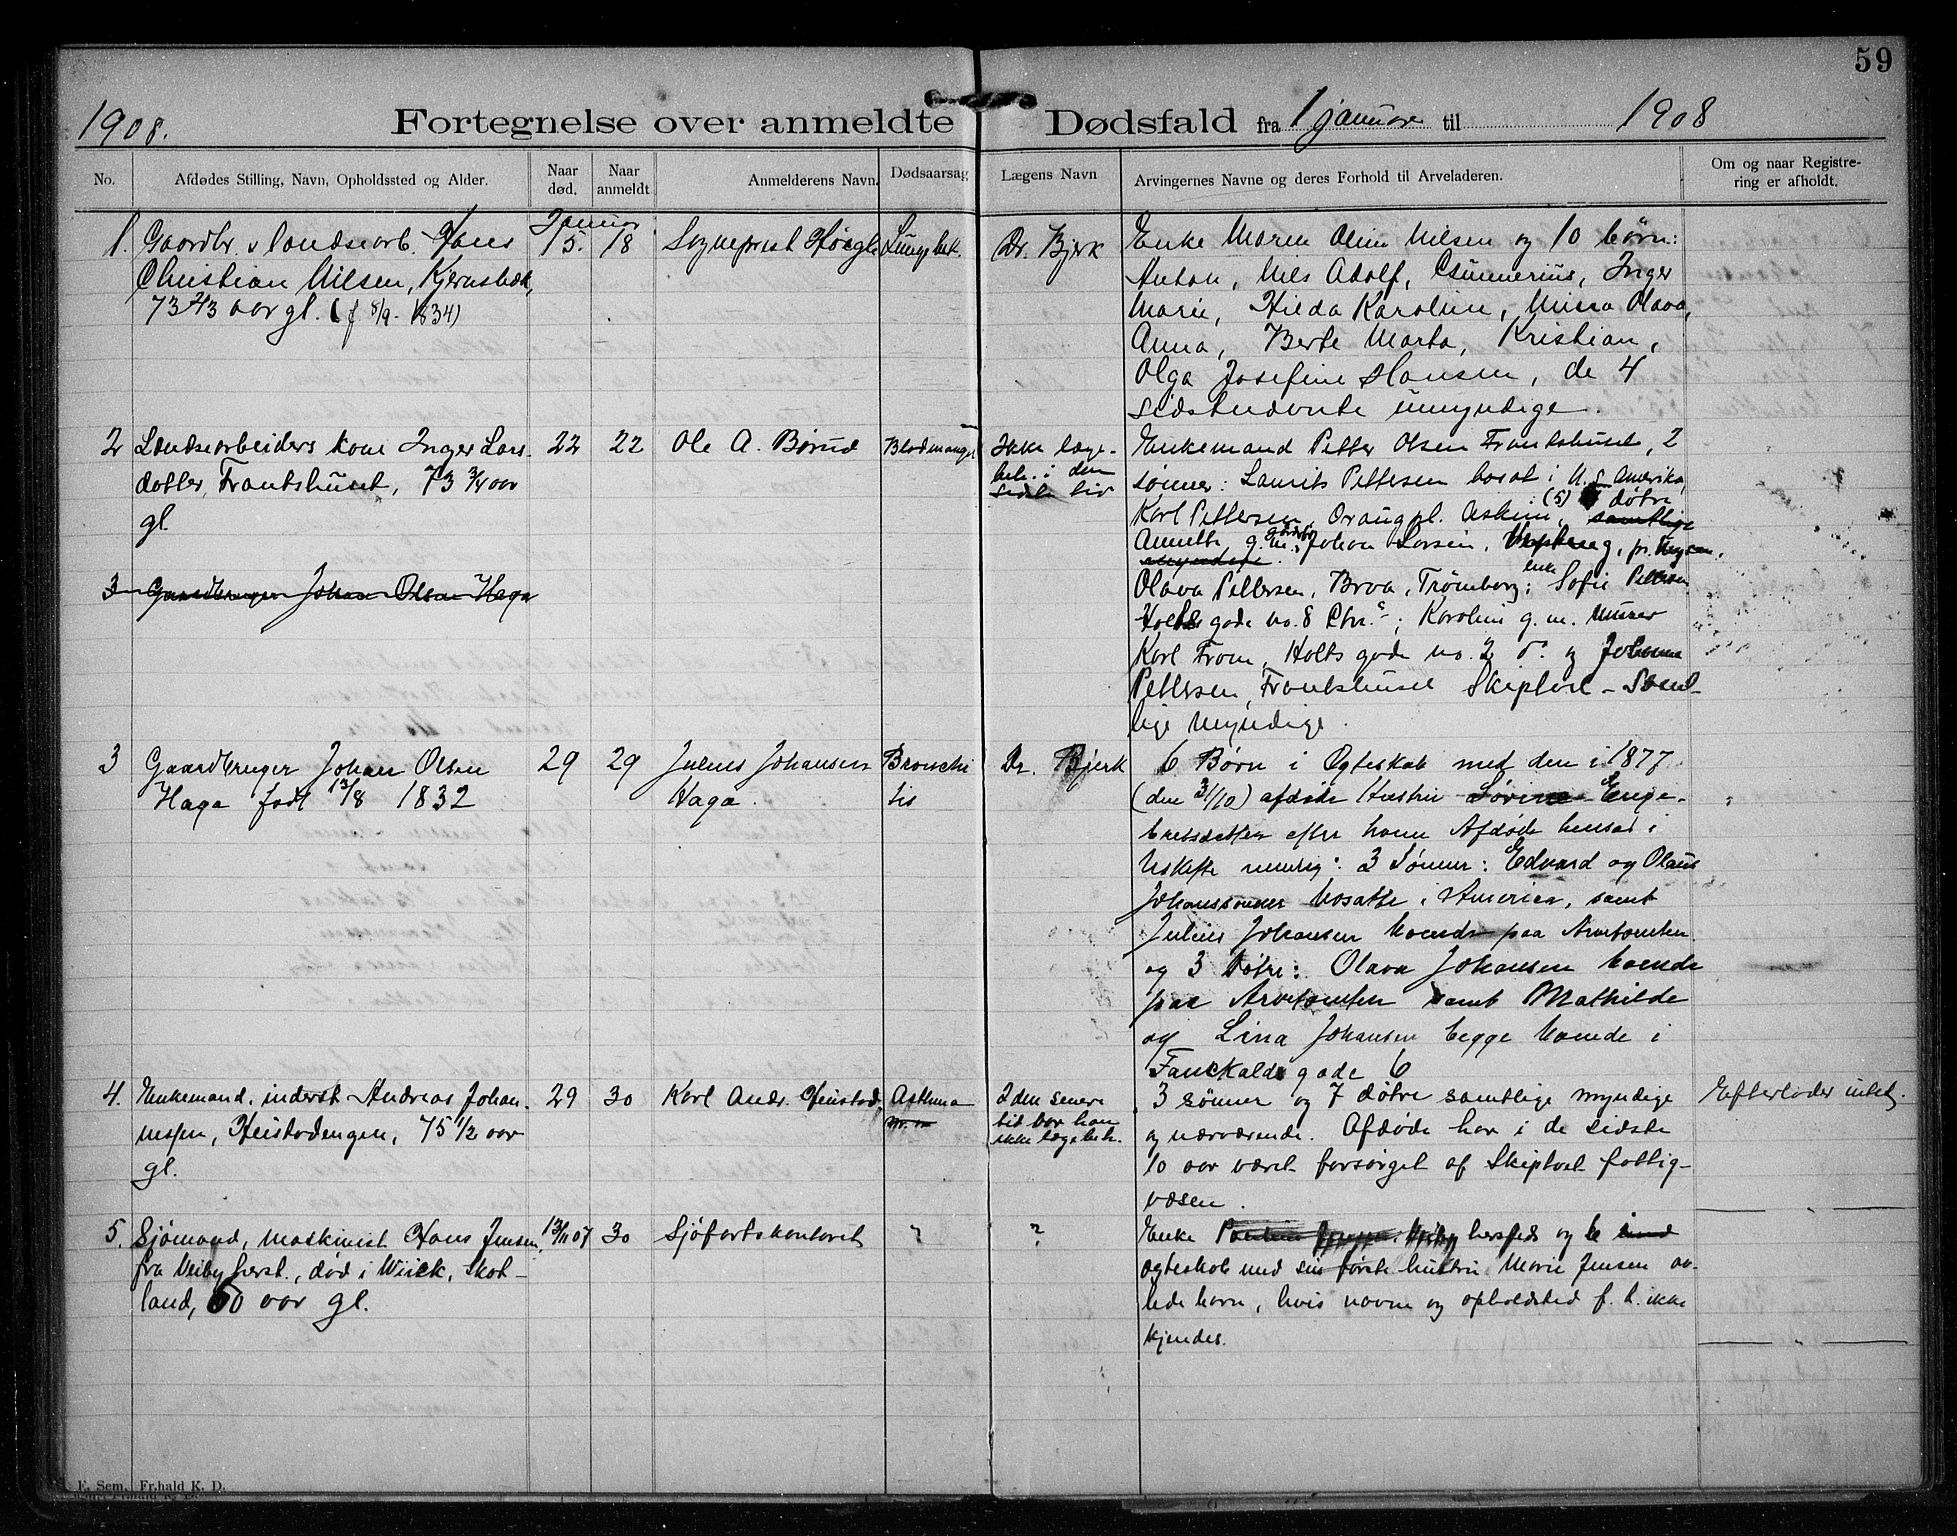 59
1908.
Fortegnelse over anmeldte Dødsfald fra 1 januar til 1908
No.
Afdødes Stilling, Navn, Opholdssted og Alder.
Naar død.
Naar anmeldt
Anmelderens Navn.
Dødsaarsag
Lægens Navn
Arvingernes Navne og deres Forhold til Arveladeren.
Om og naar Registre-
ring er afholdt.
Januar
1. Gaardbr. Hans
Christian Nilsen, Kjernsbæk,
73 aar gl. (f 8/9 - 1834)
15. 18 Sogneprest
Dr. Bjerk
Enke Maren Oline Nilsen og 10 børn:
Anton, Nils Adolf, Inger
Marie, Hilda Karoline, Olava,
Anna, Berte Marta, Kristian,
Olga Josefine Hansen, de 4
sidstnævnte umyndige.
2 Landsearbeiders kone Inger Lars-
datter, Frantshuset, 73 3/4 aar
gl.
22 22 Ole A. Børud
Blodmangel
Ikke læge-
beh. i den
sidste tid
Enkemand Petter Olsen Frantshuset, 2
sønner: Laurits Pettersen bosat i N. S. Amerika,
Karl Pettersen, Askim, (5) døtre
samtlige
Annette g. m. gaardbr. Johan Larsen, pr. Mysen,
myndige.
Olava Pettersen, Braa, Trømborg; enke Sofie Pettersen
Holtsgade no. 8 Chr.a; Karoline g. m. Murer
Karl From, Holts gade no. 2 og Johanne
Pettersen, Frantshuset Skiptvet - Samt-
lige myndige.
3 Gaardbruger Johan Olsen Haga
3 Gaardbruger Johan Olsen
Haga født 13/8 1832
29 29 Julius Johansen
Haga.
Bronchi
tis
Dr. Bjerk
6 Børn i Ægteskab med den i 1877
(den 31/10) afdøde Hustru Sørine Enge-
bretsdatter efter hvem Afdøde hensad i
Uskifte nemlig: 3 Sønner: Edvard og Olaus
Johanssønner bosatte i America, samt
Julius Johansen boende paa Arvetomten
og 3 Døtre: Olava Johansen boende
paa Arvetomten samt Mathilde
og Lina Johansen begge boende i
gade 6
4. Enkemand, inderst Andreas Johan-
nessen, Heistadengen, 75 1/2 aar
gl.
29 30 Karl Andr. Heistad,
Asthma
I den senere
tid har han
ikke lægebeh.
3 sønner og 7 døtre samtlige myndige
og nærværende. Afdøde har i de sidste
10 aar været forsørget af Skiptvet fattig-
væsen.
Efterlader intet.
5. Sjømand, maskinist Hans Jensen,
fra Veiby herst., død i Wiick, Skot-
land, 60 aar gl.
13/11 07 30 Sjøfartskontoret
?
?
Enke hersteds og 6 i
ægteskab med sin første hustru Marie Jensen av-
lede børn, hvis navne og opholdsted f. t. ikke
kjendes.
E. Sem, Fr.hald K. D.